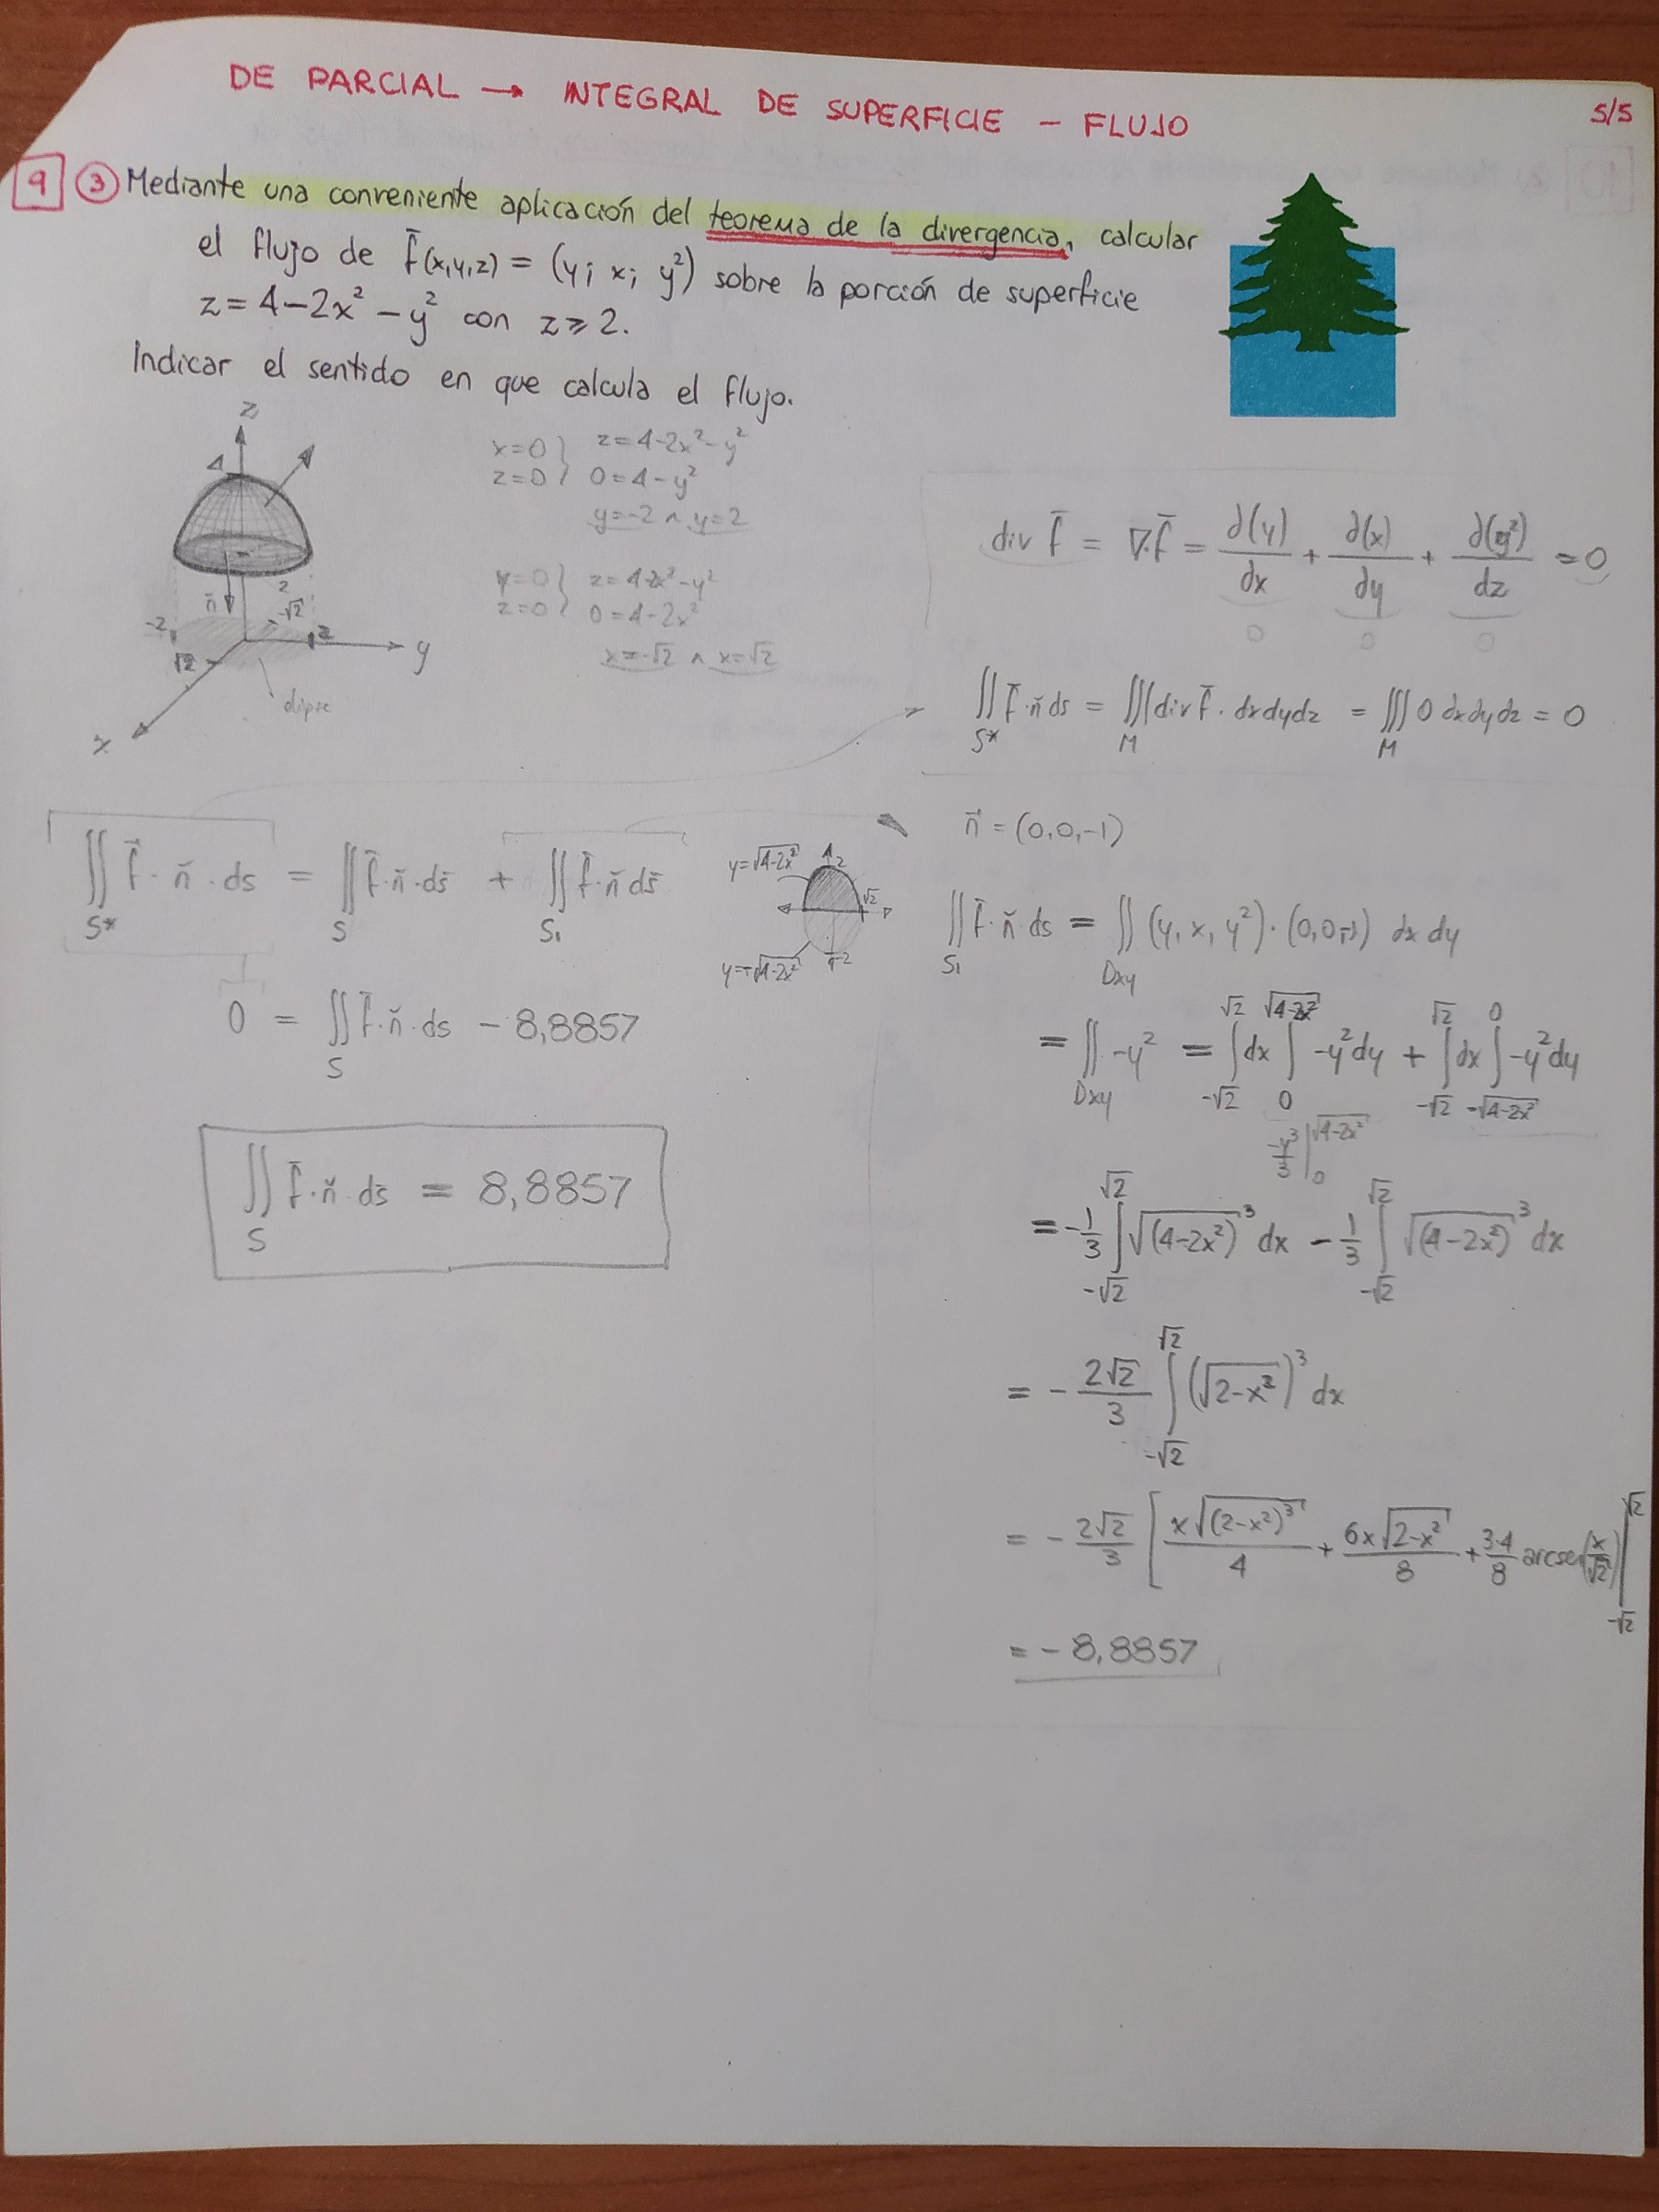 DE PARCIAL → INTEGRAL DE SUPERFICIE – FLUJO
5/5
9 ③ Mediante una conveniente aplicación del teorema de la divergencia, calcular
el flujo de f̄(x,y,z) = (y; x; y²) sobre la porción de superficie
z = 4-2x² - y² con z ⩾ 2.
Indicar el sentido en que calcula el flujo.
z
4
n̄
-2
2
-√2
2
√2
y
x
elipse
x=0 } z=4-2x²-y²
z=0 } 0=4-y²
y=-2 ∧ y=2
y=0 } z=4-2x²-y²
z=0 } 0=4-2x²
x=-√2 ∧ x=√2
div f̄ = ∇·f̄ = ∂(y)/dx + ∂(x)/dy + ∂(y²)/dz = 0
0 0 0
∬S* f̄·n̆ ds = ∭M div f̄ · dxdydz = ∭M 0 dxdydz = 0
∬S* f̄·n̆·ds = ∬S f̄·n̆·ds + ∬S₁ f̄·n̆ ds
0 = ∬S f̄·n̆·ds - 8,8857
∬S f̄·n̆·ds = 8,8857
y=√(4-2x²)
2
√2
y=-√(4-2x²)
-2
n̄ = (0,0,-1)
∬S₁ f̄·n̆ ds = ∬Dxy (y, x, y²)·(0,0,-1) dx dy
= ∬Dxy -y² = ∫-√2^√2 dx ∫0^√(4-2x²) -y²dy + ∫-√2^√2 dx ∫-√(4-2x²)^0 -y²dy
-y³/3 |0^√(4-2x²)
= -1/3 ∫-√2^√2 √(4-2x²)³ dx - 1/3 ∫-√2^√2 √(4-2x²)³ dx
= - 2√2/3 ∫-√2^√2 (√(2-x²))³ dx
= - 2√2/3 [ x√(2-x²)³/4 + 6x√(2-x²)/8 + 3·4/8 arcsen(x/√2) |-√2^√2
= - 8,8857